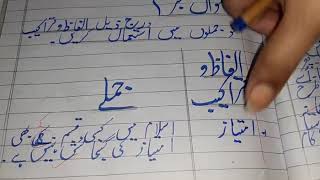 سوال نمبر ۱
درج ذیل الفاظ و تراکیب
کو جملوں میں استعمال کریں۔
الفاظ و تراکیب
جملے
امتیاز
اسلام میں کسی قسم کے بھی
امتیاز کی گنجائش نہیں ہے۔